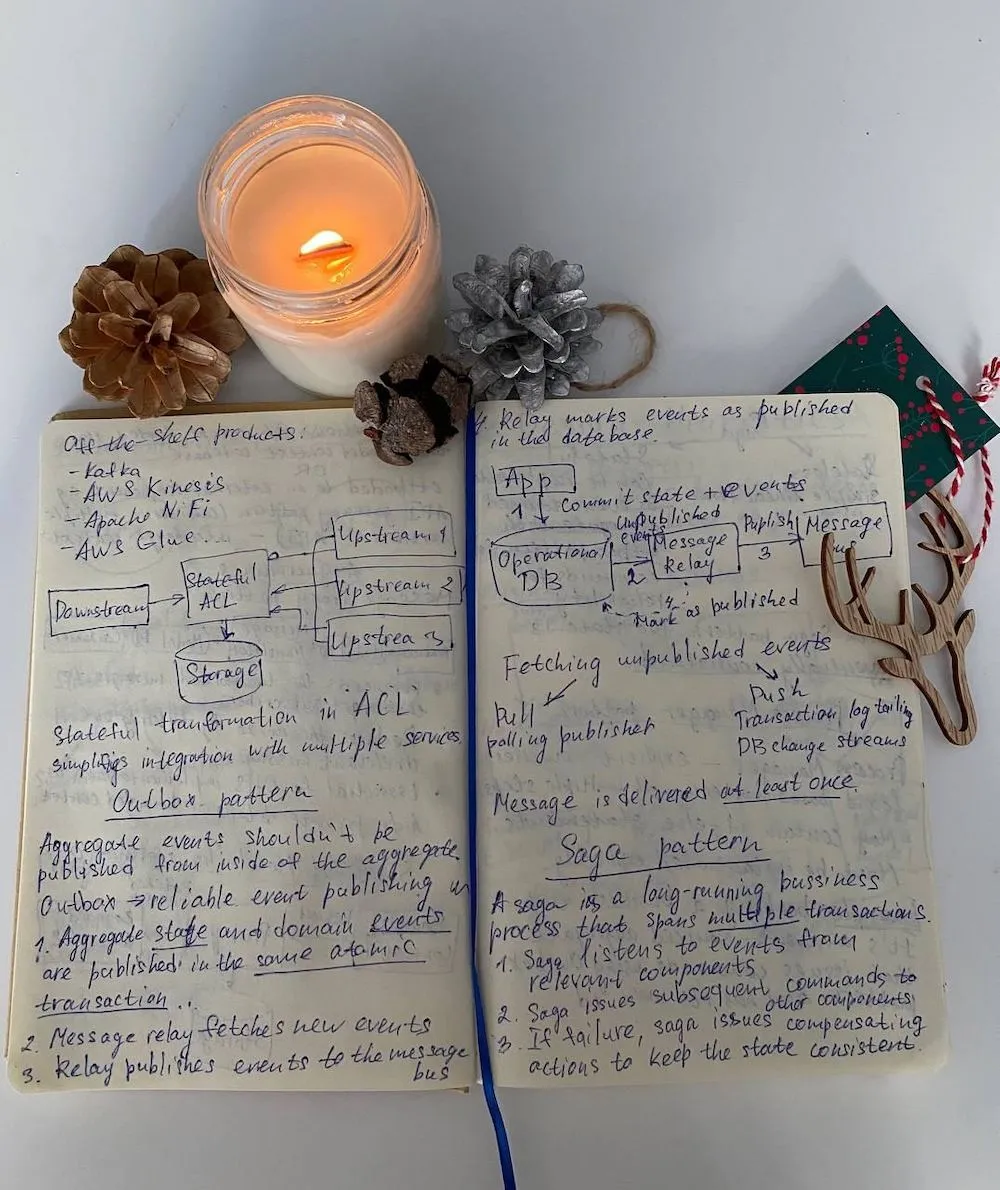 Off-the-shelf products:
- Kafka
- AWS Kinesis
- Apache NiFi
- AWS Glue.
Downstream
Stateful
ACL
Upstream 1
Upstream 2
Upstrea 3
Storage
Stateful tranformation in "ACL"
simplifies integration with multiple services.
Outbox pattern
Aggregate events shouldn't be
published from inside of the aggregate.
Outbox → reliable event publishing
1. Aggregate state and domain events
are published in the same atomic
transaction..
2. Message relay fetches new events
3. Relay publishes events to the message
bus
4. Relay marks events as published
in the database.
App
1 Commit state + events
Operational
DB
Unpublished
events
2
Message
Relay
Publish
3
Message
4.
Mark as published
Fetching unpublished events
Pull
polling publisher
Push
Transaction log tailing
DB change streams
Message is delivered at least once.
Saga pattern
A saga is a long-running bussiness
process that spans multiple transactions.
1. Saga listens to events from
relevant components
2. Saga issues subsequent commands to
other components
3. If failure, saga issues compensating
actions to keep the state consistent.